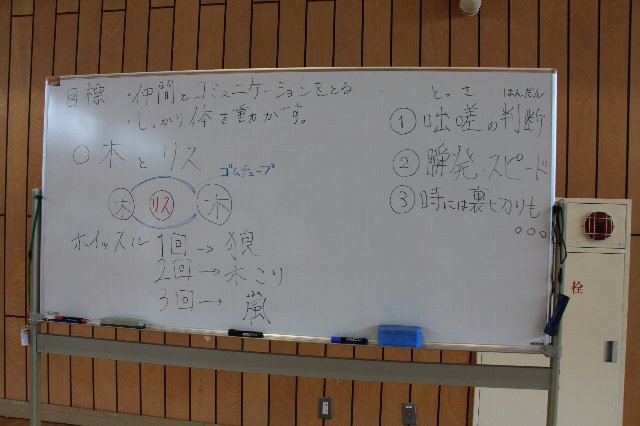 目標 ・仲間とコミュニケーションをとる
・しっかり体を動かす。
○ 木とリス
ゴムチューブ
木 リス 木
ホイッスル 1回 → 狼
2回 → 木こり
3回 → 嵐
とっさ はんだん
① 咄嗟の判断
② 瞬発・スピード
③ 時には裏切りも
。。。
栓